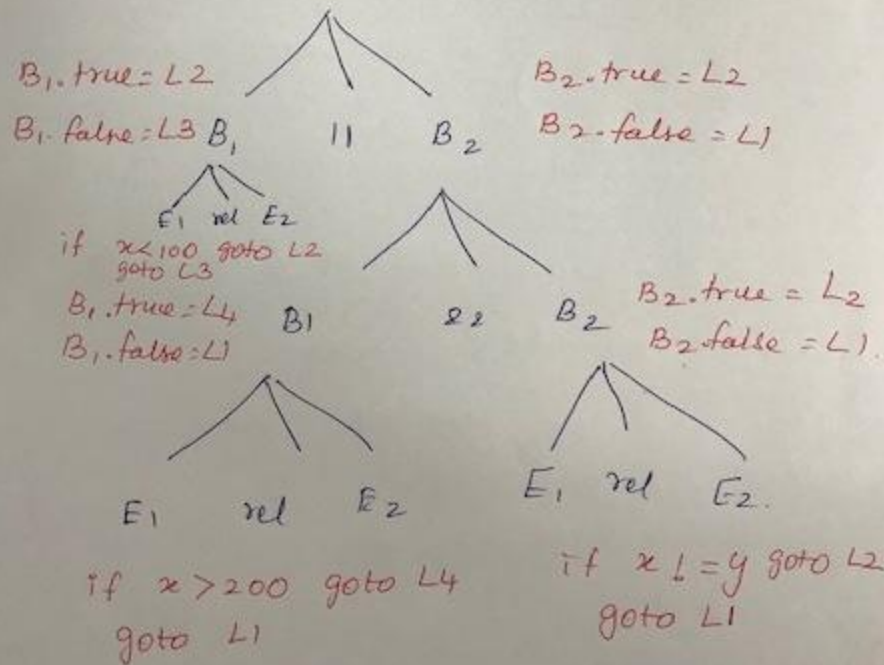 B₁.true = L2
B₂.true = L2
B₁.false = L3 B₁ || B₂
B₂.false = L1
E₁ rel E₂
if x<100 goto L2
goto L3
B₁.true = L4
B₁.false = L1
B1 && B₂
B₂.true = L₂
B₂.false = L1.
E₁ rel E₂
E₁ rel E₂.
if x>200 goto L4
goto L1
if x!=y goto L2
goto L1